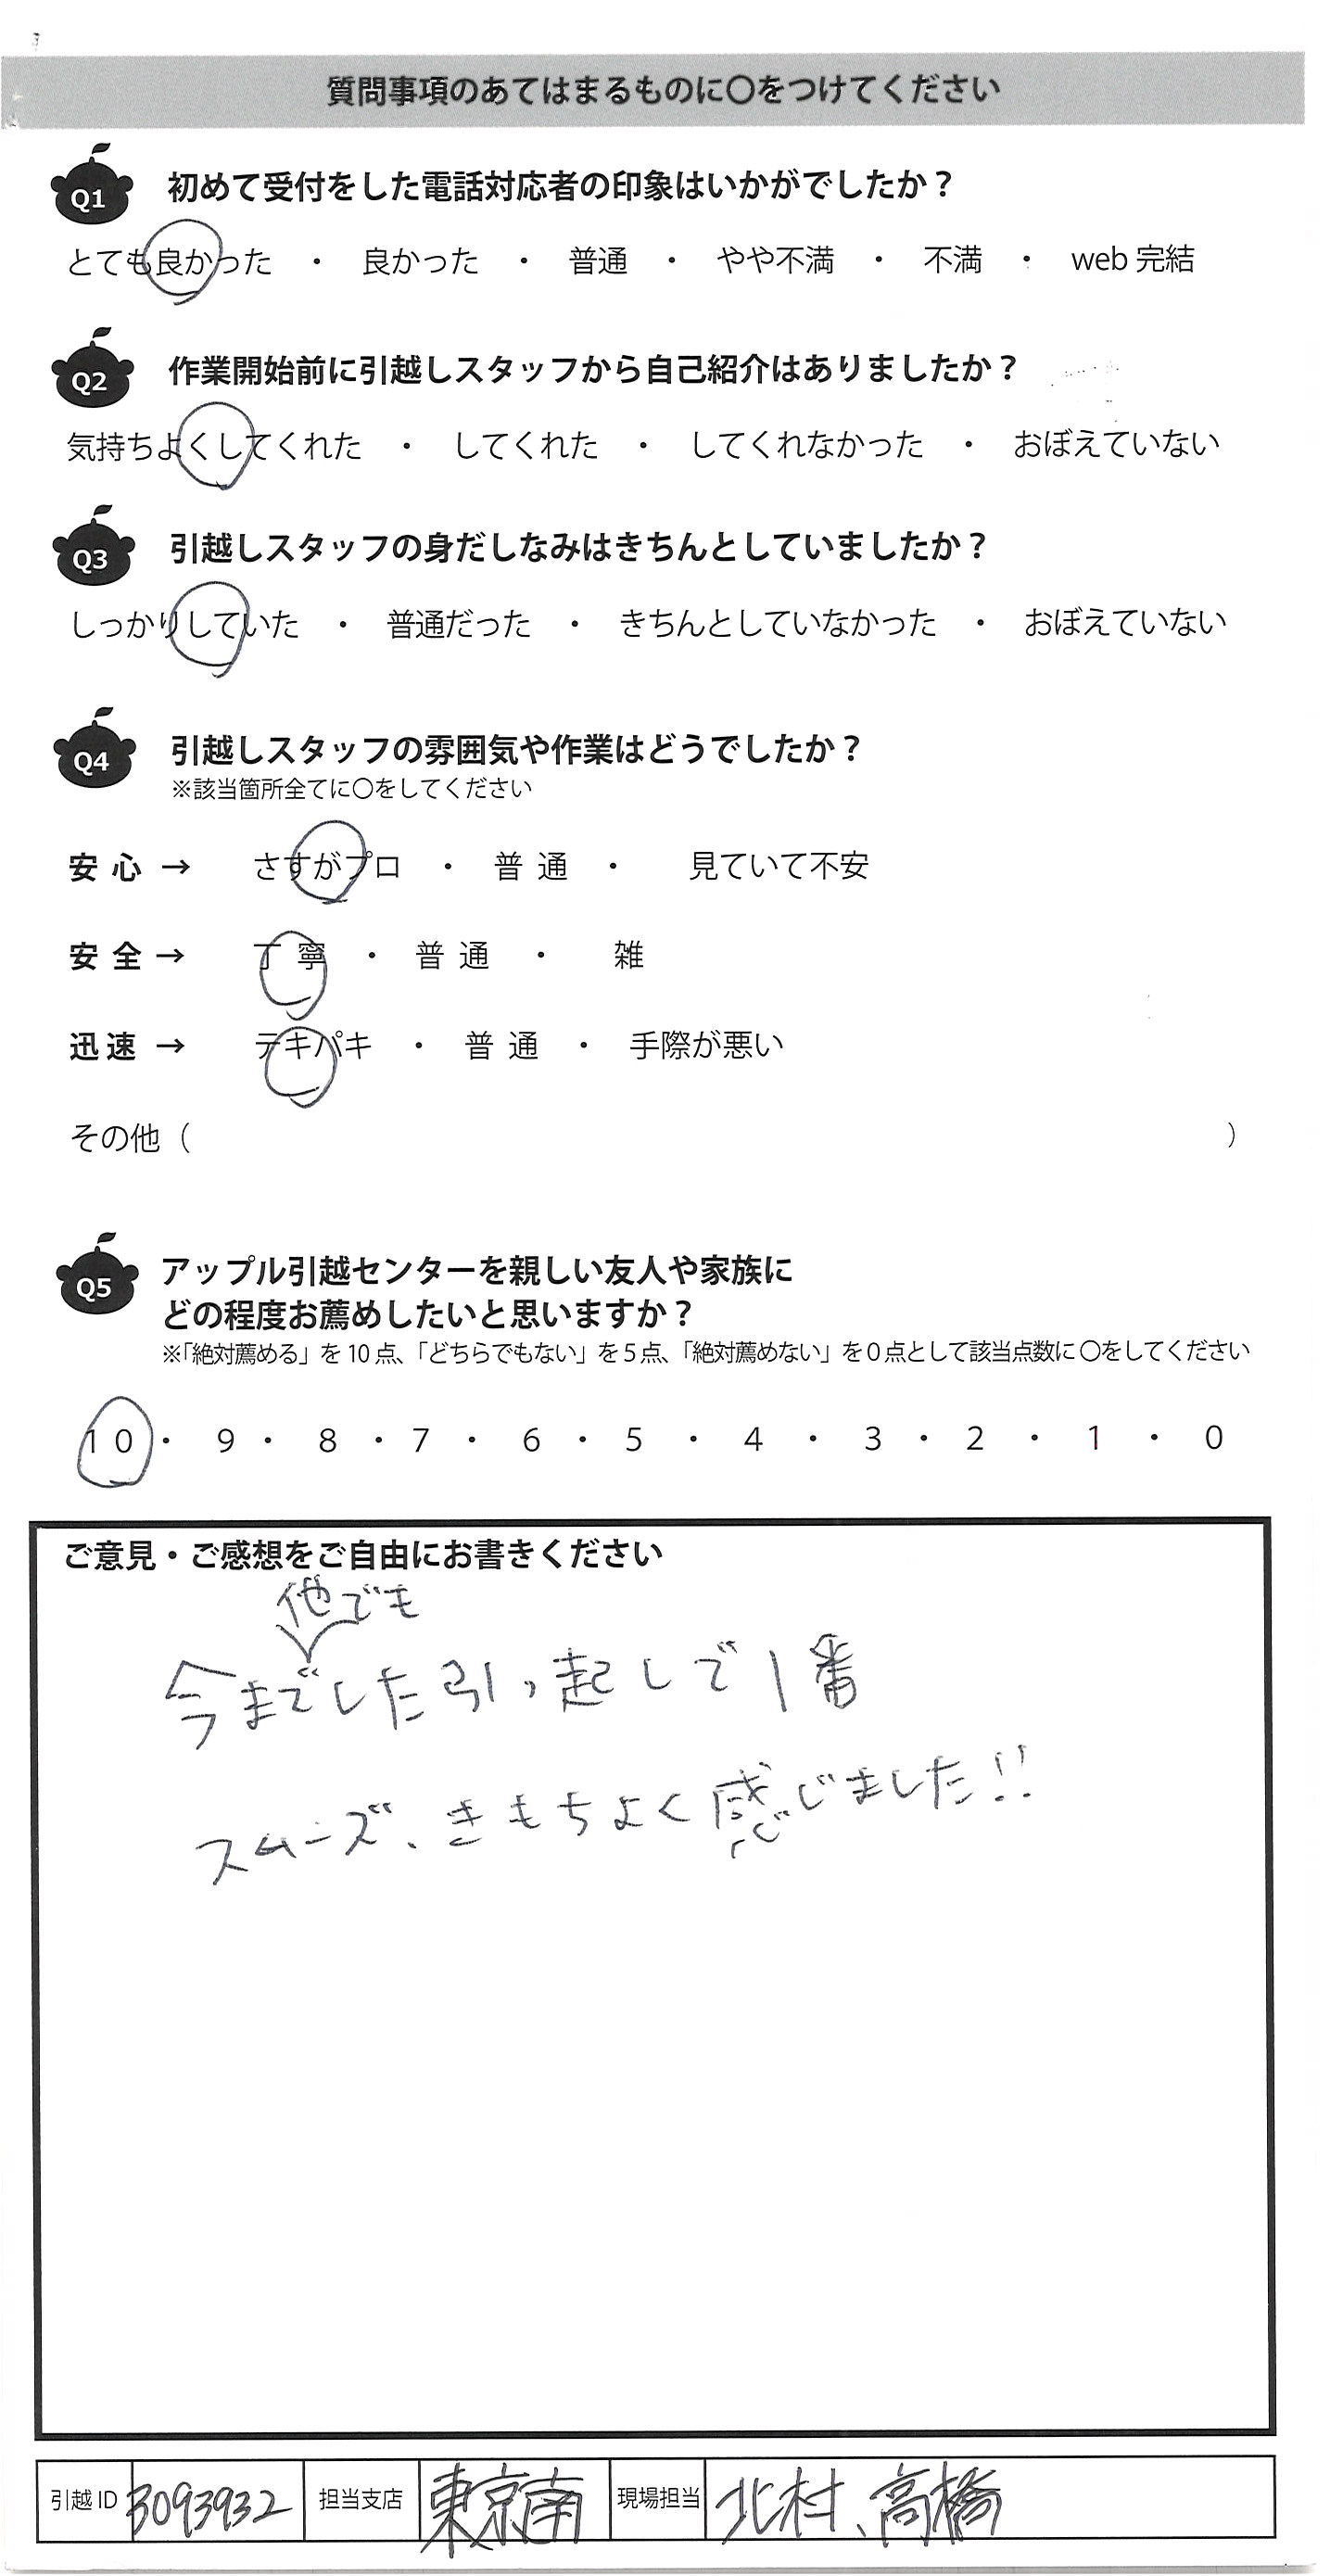 質問事項のあてはまるものに〇をつけてください
Q1 初めて受付をした電話対応者の印象はいかがでしたか？
とても良かった ・ 良かった ・ 普通 ・ やや不満 ・ 不満 ・ web 完結
Q2 作業開始前に引越しスタッフから自己紹介はありましたか？
気持ちよくしてくれた ・ してくれた ・ してくれなかった ・ おぼえていない
Q3 引越しスタッフの身だしなみはきちんとしていましたか？
しっかりしていた ・ 普通だった ・ きちんとしていなかった ・ おぼえていない
Q4 引越しスタッフの雰囲気や作業はどうでしたか？
※該当箇所全てに〇をしてください
安心 → さすがプロ ・ 普通 ・ 見ていて不安
安全 → 丁寧 ・ 普通 ・ 雑
迅速 → テキパキ ・ 普通 ・ 手際が悪い
その他（ ）
Q5 アップル引越センターを親しい友人や家族に
どの程度お薦めしたいと思いますか？
※「絶対薦める」を10点、「どちらでもない」を5点、「絶対薦めない」を0点として該当点数に〇をしてください
10 ・ 9 ・ 8 ・ 7 ・ 6 ・ 5 ・ 4 ・ 3 ・ 2 ・ 1 ・ 0
ご意見・ご感想をご自由にお書きください
他でも
今までした引っ起しで1番
スムーズ、きもちよく感じました!!
引越ID 3093932 担当支店 東京南 現場担当 北村、高橋